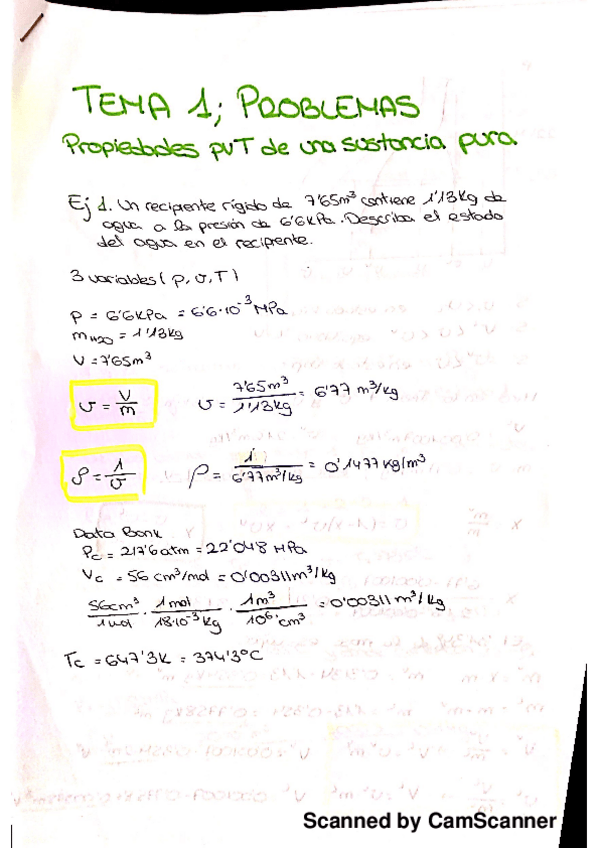 TEMA 1; PROBLEMAS
Propiedades pvT de una sustancia pura
Ej 1. Un recipiente rígido de 7'65m³ contiene 1'13Kg de
agua a la presión de 6'6KPa. Describa el estado
del agua en el recipiente.
3 variables (p, v, T)
P = 6'6KPa = 6'6·10⁻³ MPa
m H2O = 1'13kg
V = 7'65m³
v = V/m v = 7'65m³/1'13kg = 6'77 m³/kg
ρ = 1/v ρ = 1/6'77m³/kg = 0'1477 kg/m³
Data Bank
Pc = 217'6 atm = 22'048 MPa
Vc = 56 cm³/mol = 0'00311 m³/kg
56cm³/1mol · 1mol/18·10⁻³kg · 1m³/10⁶cm³ = 0'00311 m³/kg
Tc = 647'3K = 374'3ºC
Scanned by CamScanner